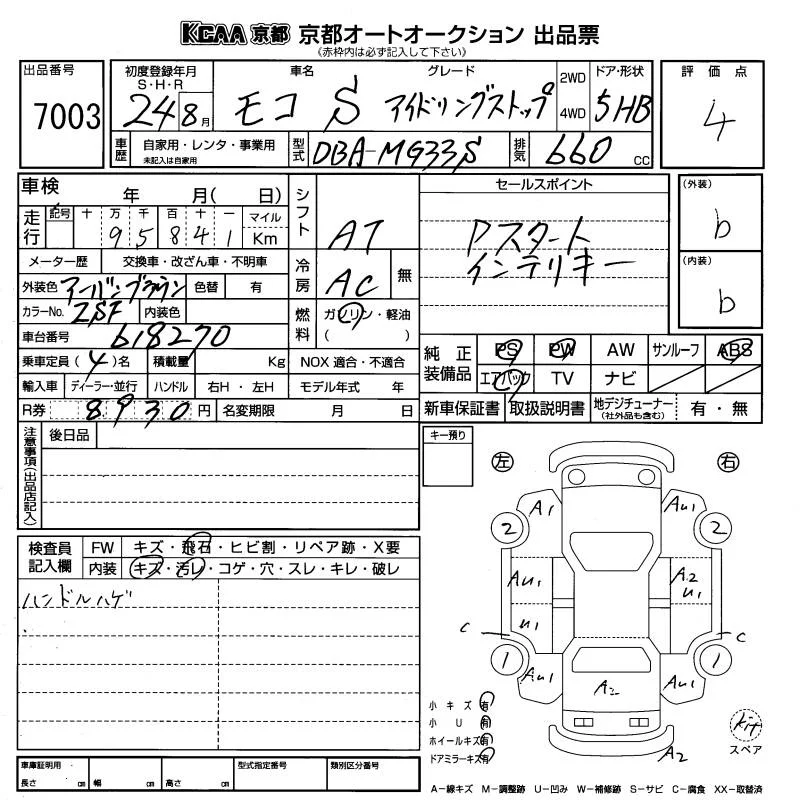 KCAA 京都 京都オートオークション 出品票
(赤枠内は必ず記入して下さい)
出品番号 7003
初度登録年月 S・H・R 24 8月
車名 モコ S
グレード アイドリングストップ
2WD 4WD
ドア・形状 5HB
評価点 4
車歴 自家用・レンタ・事業用 未記入は自家用
型式 DBA-MG33S
排気 660 CC
車検 年 月( 日)
シフト AT
セールスポイント
Pスタート
インテリキー
(外装) b
(内装) b
走行 記号 十 万 千 百 十 一 マイル
9 5 8 4 1 Km
メーター歴 交換車・改ざん車・不明車
冷房 AC 無
外装色 アーバンブラウン 色替 有
カラーNo. ZSF 内装色
燃料 ガソリン・軽油
( )
車台番号 618270
乗車定員 (4)名 積載量 Kg NOX 適合・不適合
輸入車 ディーラー・並行 ハンドル 右H・左H モデル年式 年
R券 8930円 名変期限 月 日
純正装備品 PS PW AW サンルーフ ABS
エアバック TV ナビ
新車保証書 取扱説明書 地デジチューナー (社外品も含む) 有・無
注意事項(出品店記入) 後日品
キー預り
左 右
検査員記入欄 FW キズ・飛石・ヒビ割・リペア跡・X要
内装 キズ・汚レ・コゲ・穴・スレ・キレ・破レ
ハンドルハゲ
A1 AU1
2 2
AU1 A2 U1
U1
C C
1 1
AU1 A2 AU1
A2
小キズ 有
小U 有
ホイールキズ 有
ドアミラーキズ 有
kit
スペア
車庫証明用 長さ cm 幅 cm 高さ cm 型式指定番号 類別区分番号
A-線キズ M-調整跡 U-凹み W-補修跡 S-サビ C-腐食 XX-取替済